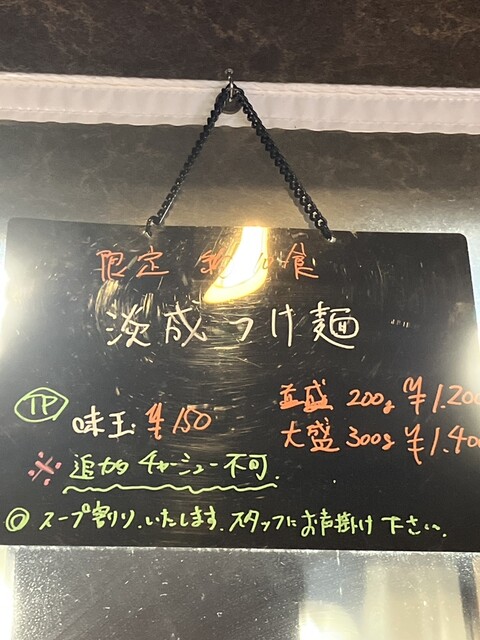 限定 約10食
淡成つけ麺
並盛 200g ¥1.200
TP 味玉 ¥150
大盛 300g ¥1.40
※追加 チャーシュー不可.
◎スープ割り.いたします.スタッフにお声掛け下さい.